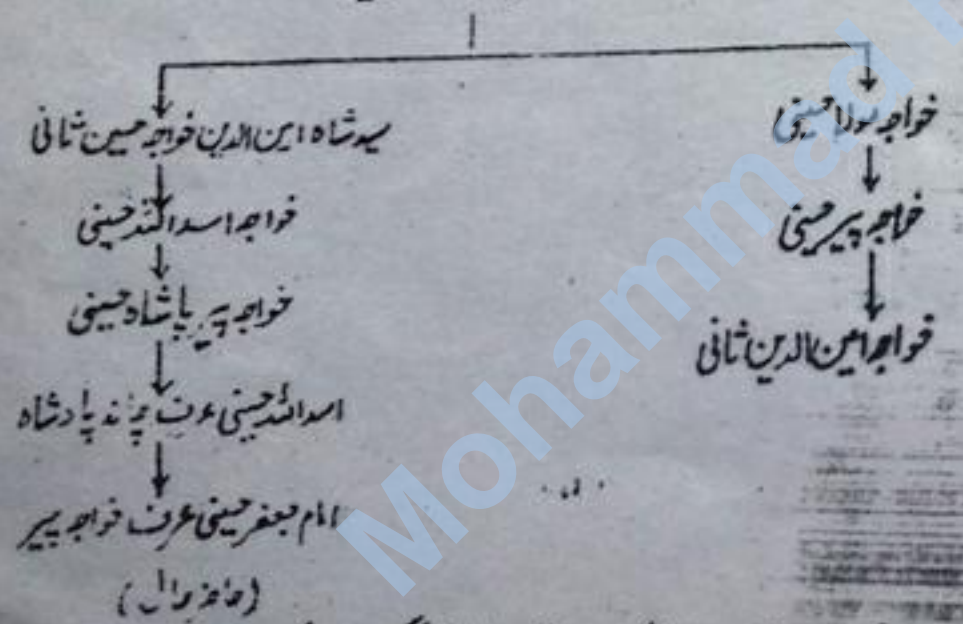 خواجہ مولا حسینی
خواجہ پیر حسینی
خواجہ امین الدین ثانی
سید شاہ امین الدین خواجہ حسین ثانی
خواجہ اسد اللہ حسینی
خواجہ پیر پاشاہ حسینی
اسد اللہ حسینی عرف چاند پادشاہ
امام جعفر حسینی عرف خواجہ پیر
Mohammad